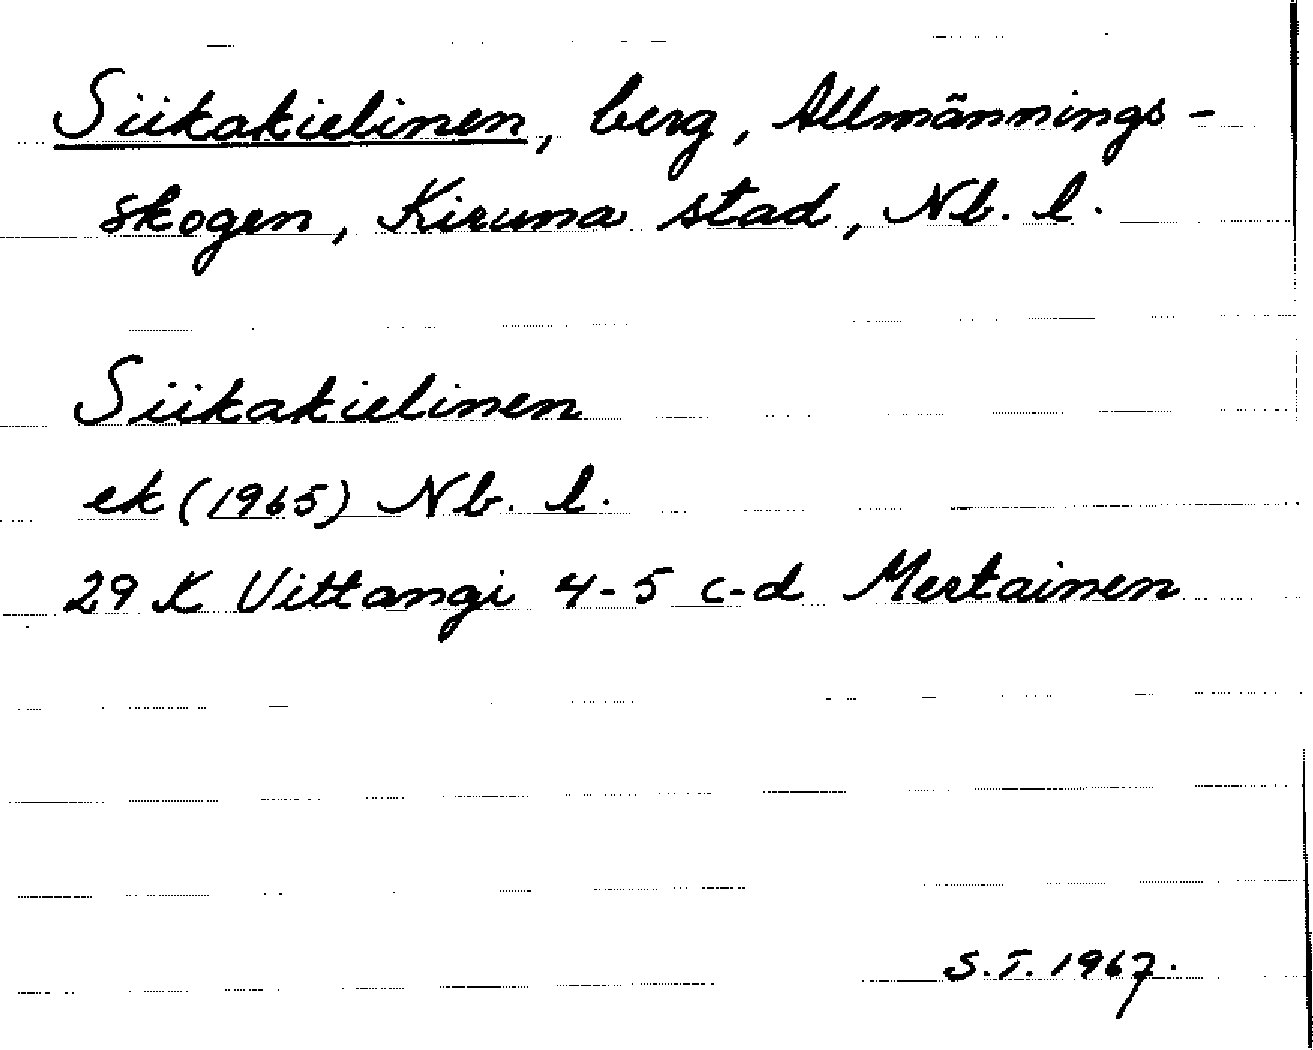 Siikakielinen, berg, Allmännings-
skogen, Kiruna stad, Nb. l.
Siikakielinen
ek (1965) Nb. l.
29 K Vittangi 4-5 c-d Mertainen
S.T. 1967.